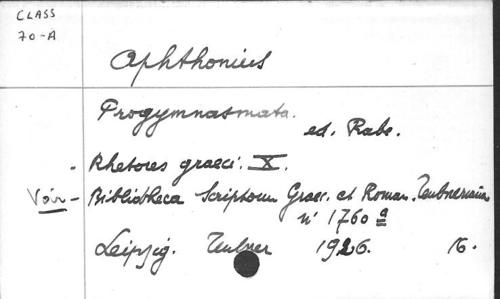 CLASS
70-A
Aphthonius
Progymnasmata.
ed. Rabe.
. Rhetores graeci. X.
Voir - Bibliotheca Scriptorum Graec. et Roman. Teubneriana
n° 1760 a
Leipzig. Teubner 1926. 16.